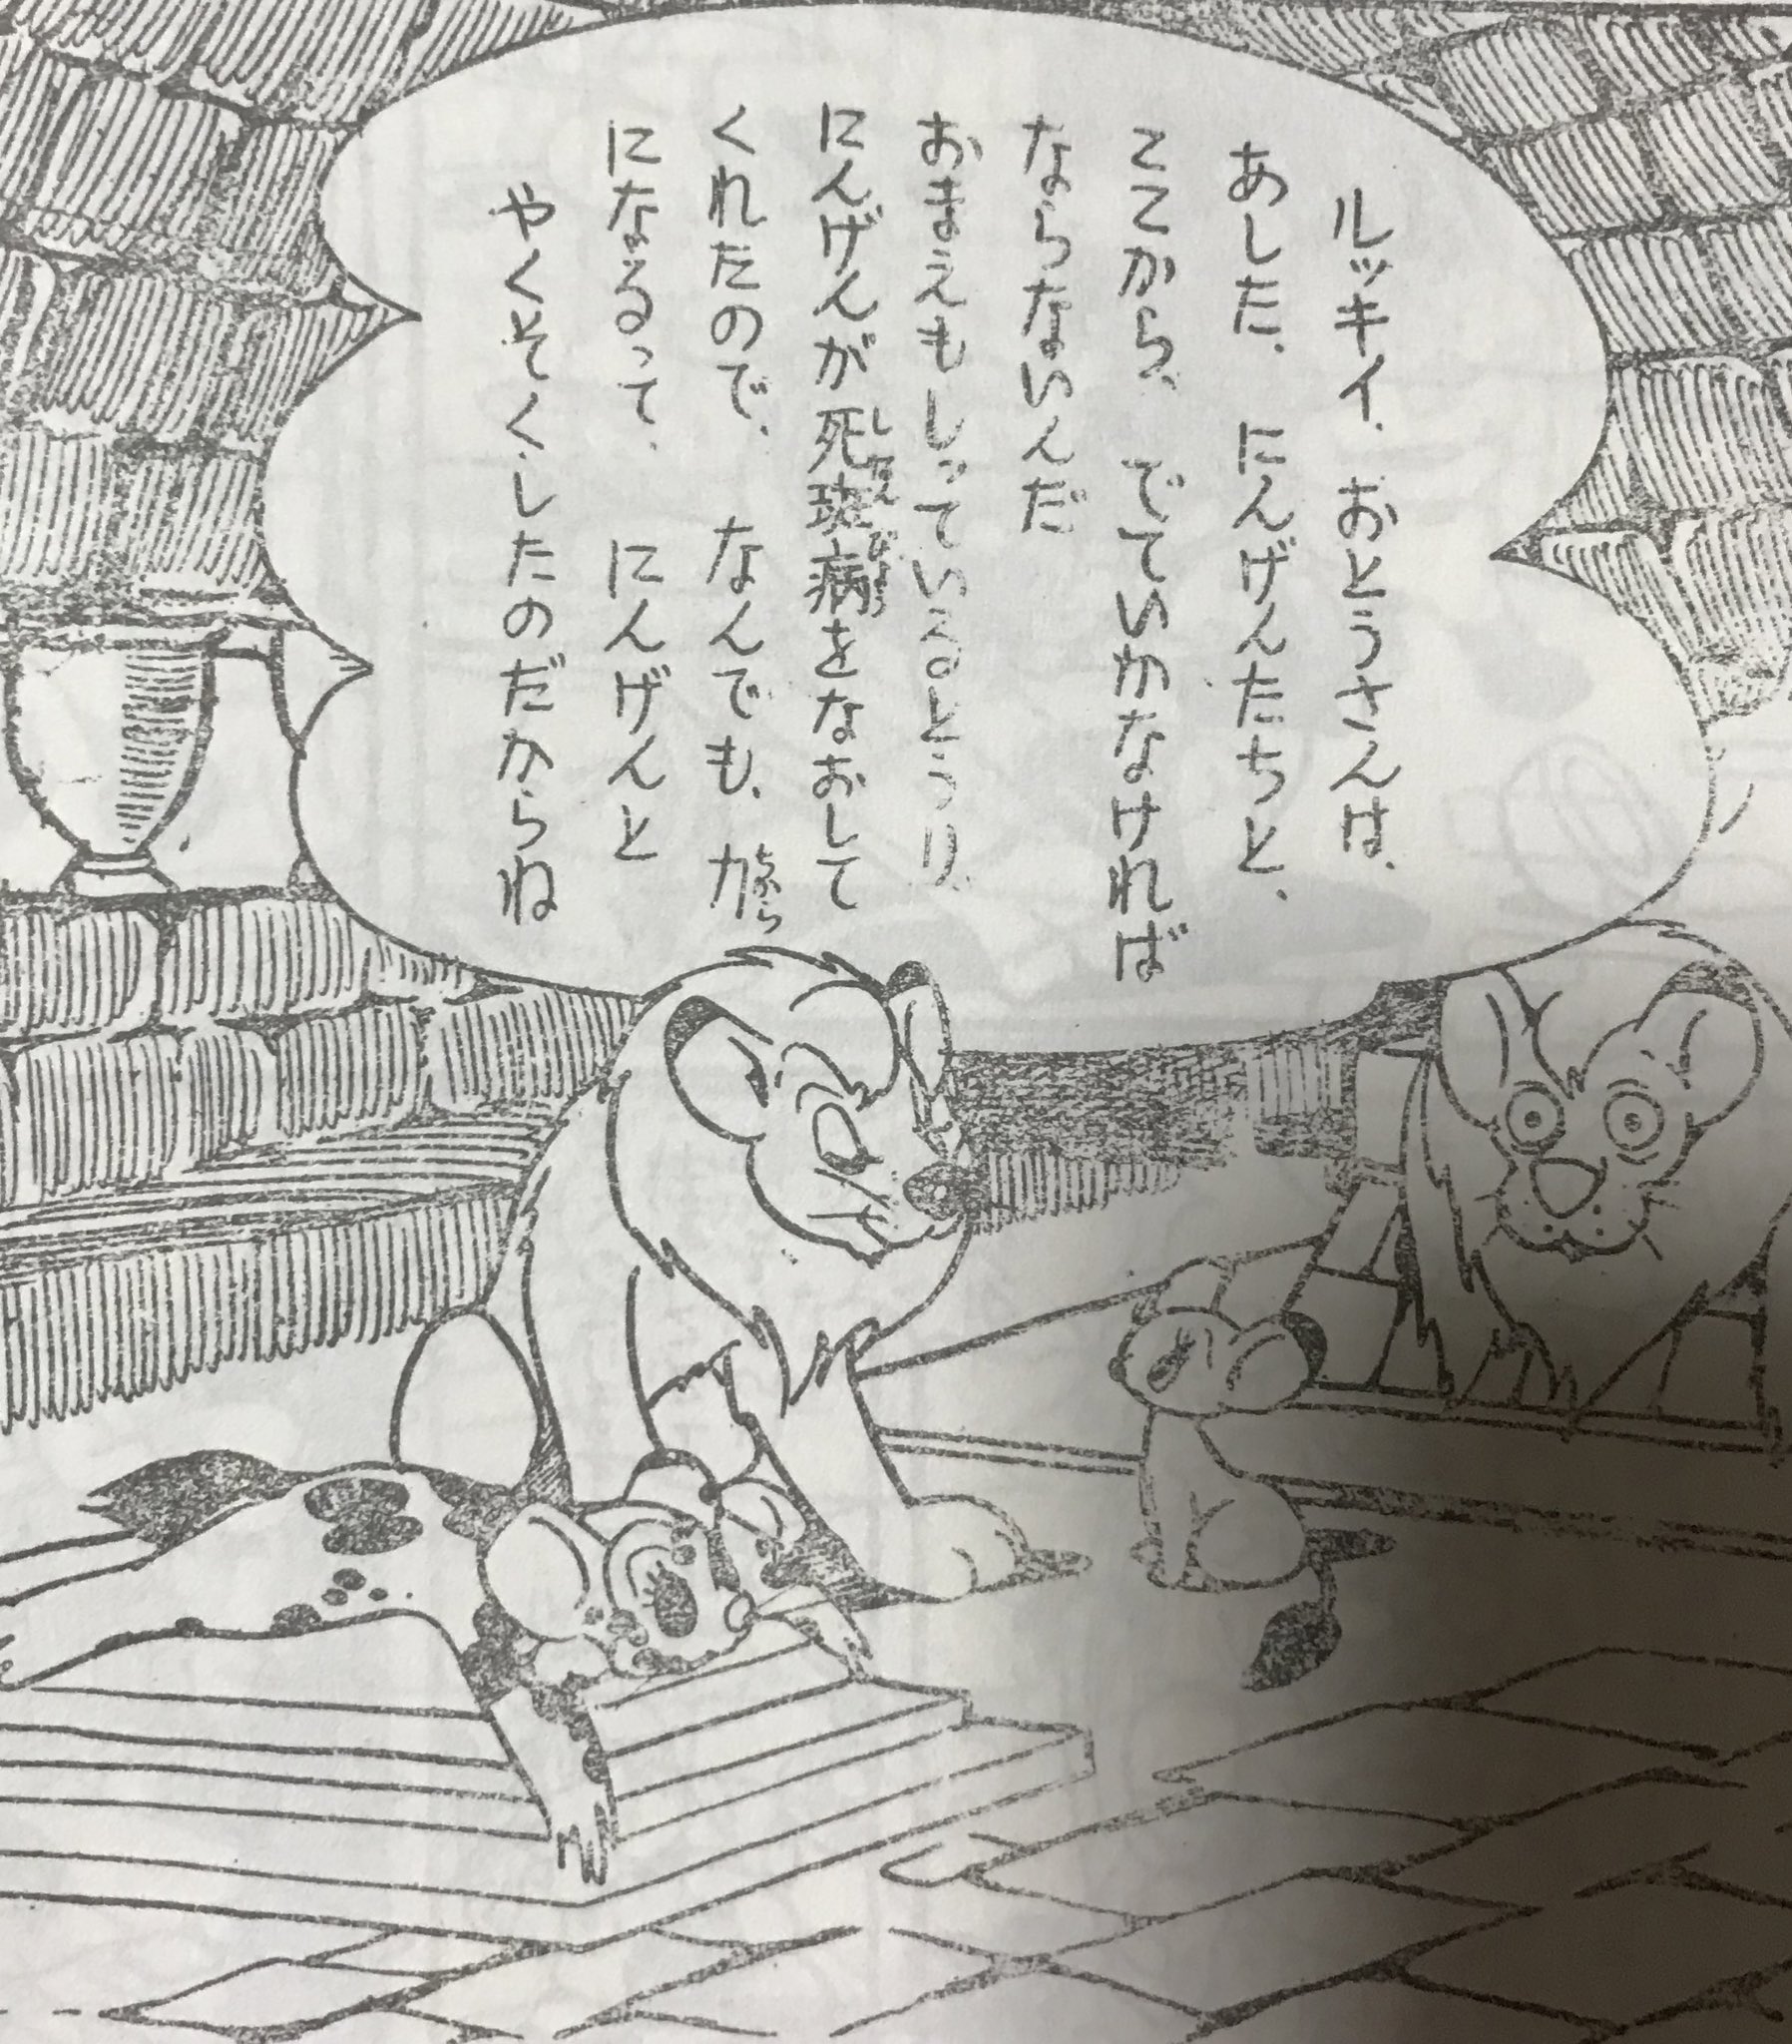 ルッキイ、おとうさんは、
あした、にんげんたちと、
ここから、でていかなければ
ならないんだ
おまえもしっているとうり、
にんげんが死斑病をなおして
くれたので、なんでも、力
になるって、にんげんと
やくそくしたのだからね